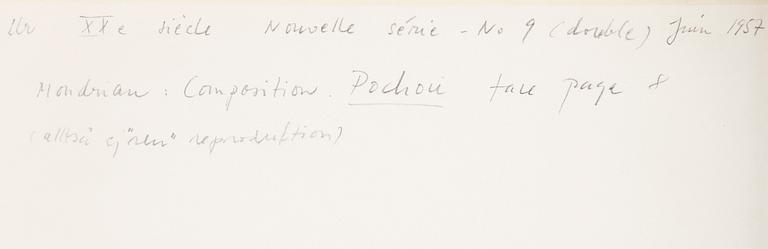 Ur XXe siècle Nouvelle série - No 9 (double) Juin 1957
Mondrian: Composition. Pochoir face page 8
(alltså ej "ren" reproduktion)